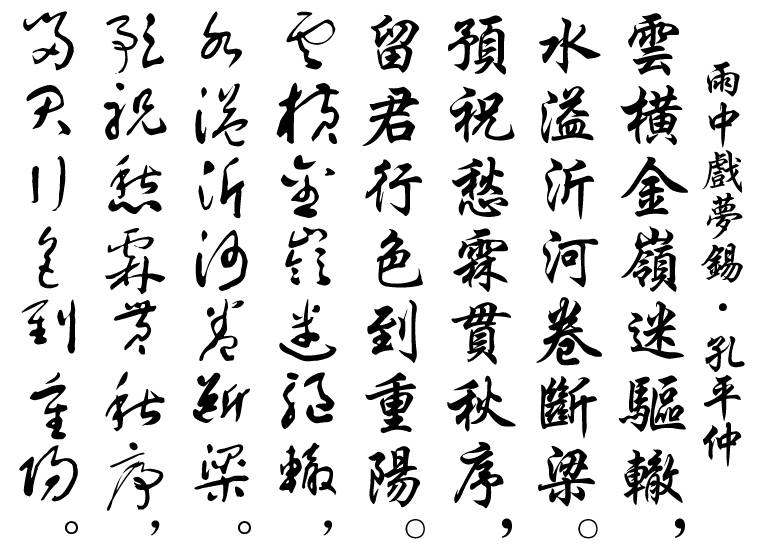 雨中戲夢錫·孔平仲
雲橫金嶺迷驅轍,
水溢沂河卷斷梁。
預祝愁霖貫秋序,
留君行色到重陽。
雲橫金嶺迷驅轍,
水溢沂河卷斷梁。
預祝愁霖貫秋序,
留君行色到重陽。